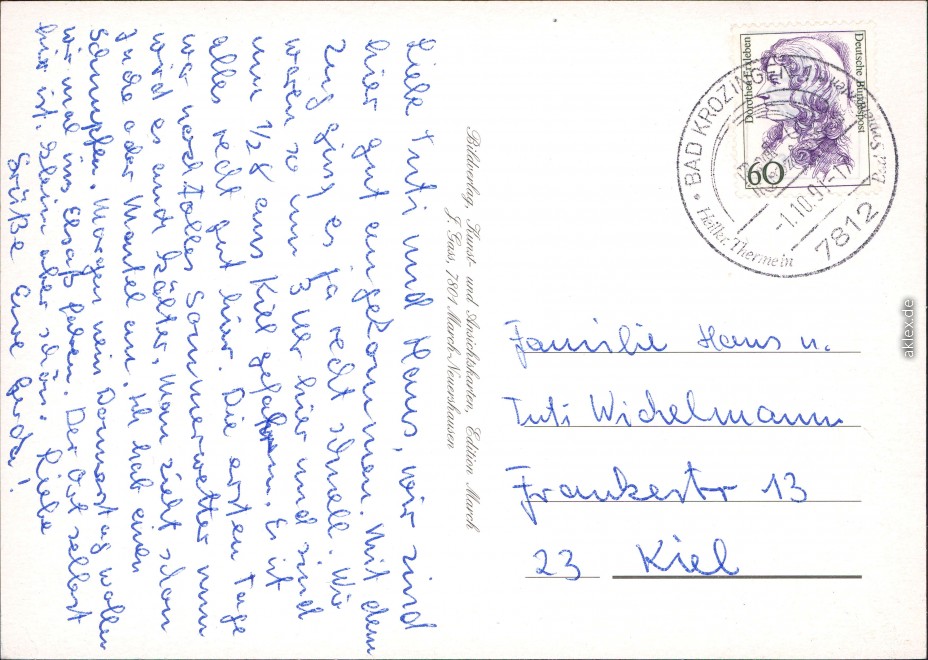 Liebe Tuti und Hans, wir sind
hier gut angekommen. Mit dem
Zug ging es ja recht schnell. Wir
waren so um 3 Uhr hier und sind
um 1/28 aus Kiel gefahren. Es ist
alles recht gut hier. Die ersten Tage
war noch tolles Sommerwetter nun
wird es auch kälter. Man zieht schon
Jacke oder Mantel an. Ich hab einen
Schnupfen. Morgen nein Donnerstag wollen
wir mal ins Elsaß fahren. Der Ort selbst
hier ist klein aber schön. Liebe
Grüße Eure Gerda!
Bildverlag, Kunst- und Ansichtskarten, Edition March
J. Gass, 7801 March-Neuershausen
Deutsche Bundespost
Dorothea Erxleben
60
BAD KROZINGEN
-1.10.91-17
7812
Familie Hans u.
Tuti Wichelmann
Frankestr 13
23 Kiel
aklex.de